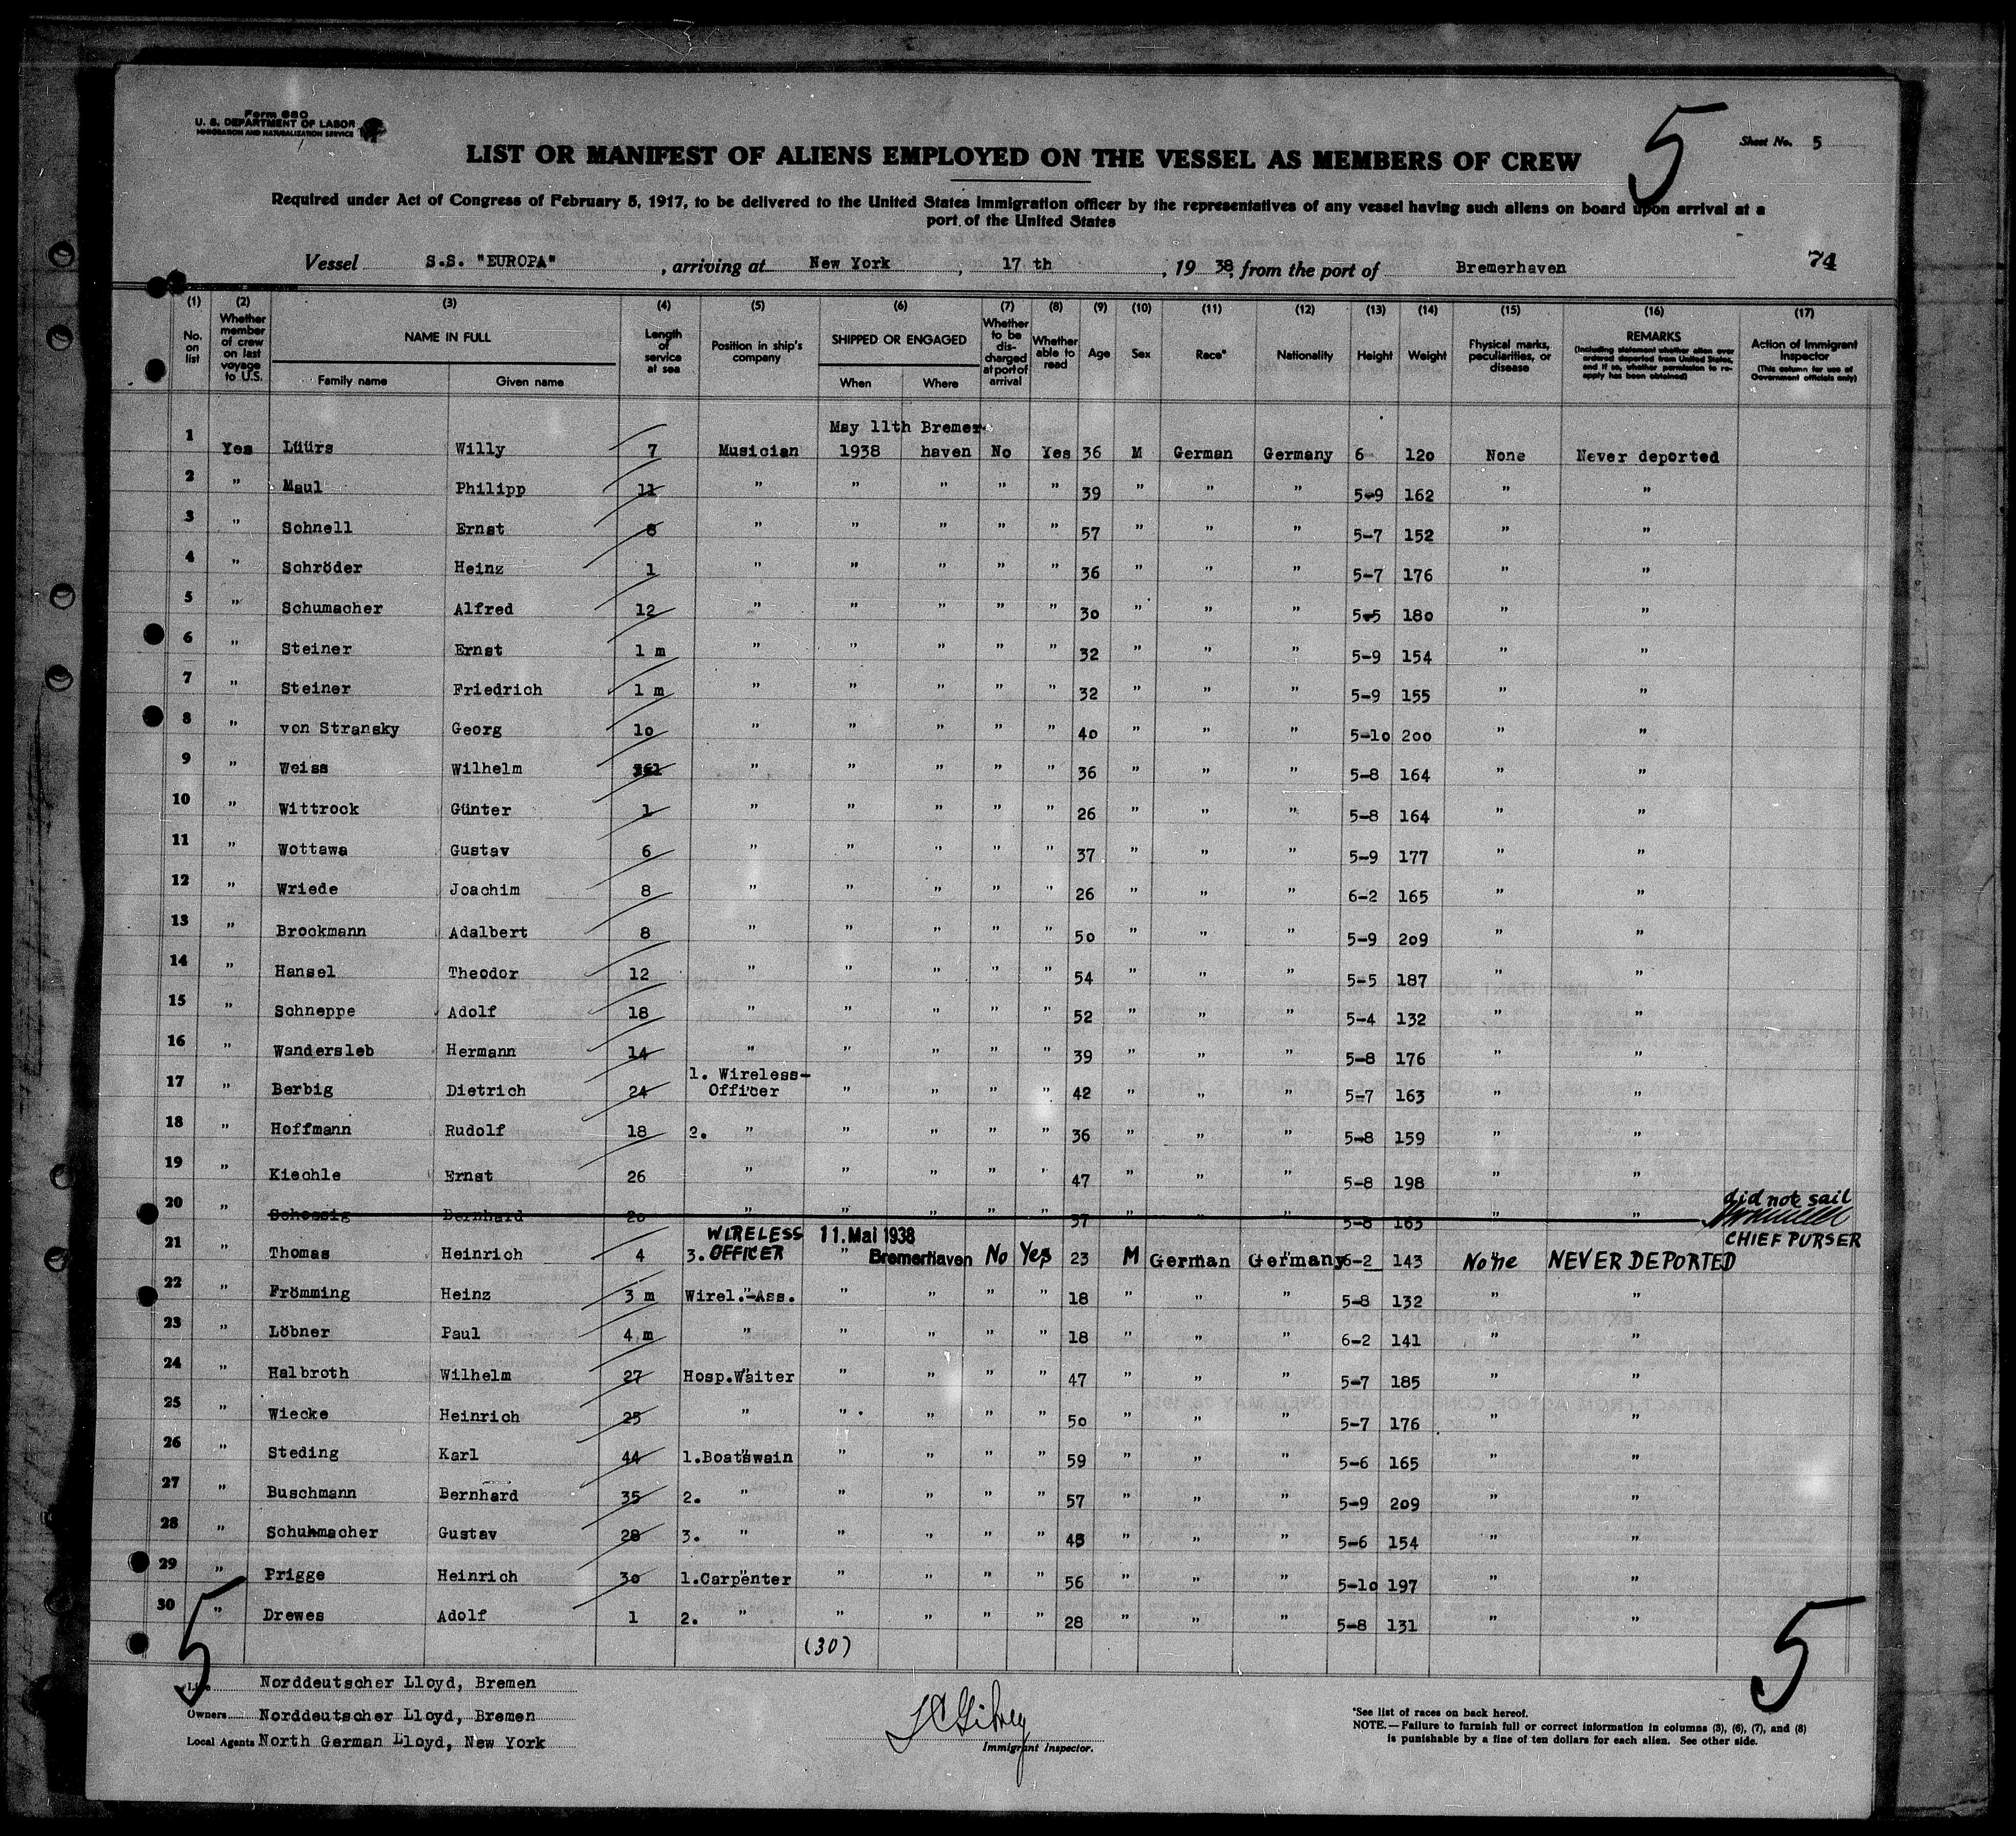 Form 680
U. S. DEPARTMENT OF LABOR
IMMIGRATION AND NATURALIZATION SERVICE
5
Sheet No. 5
LIST OR MANIFEST OF ALIENS EMPLOYED ON THE VESSEL AS MEMBERS OF CREW
Required under Act of Congress of February 5, 1917, to be delivered to the United States immigration officer by the representatives of any vessel having such aliens on board upon arrival at a
port of the United States
Vessel S.S. "EUROPA", arriving at New York, 17 th, 1938, from the port of Bremerhaven
74
(1) (2) (3) (4) (5) (6) (7) (8) (9) (10) (11) (12) (13) (14) (15) (16) (17)
No. on list Whether member of crew on last voyage to U.S. NAME IN FULL Family name Given name Length of service at sea Position in ship's company SHIPPED OR ENGAGED When Where Whether to be discharged at port of arrival Whether able to read Age Sex Race* Nationality Height Weight Physical marks, peculiarities, or disease REMARKS (Including statement whether alien ever ordered deported from United States, and if so, whether permission to reapply has been obtained) Action of Immigrant Inspector (This column for use of Government officials only)
May 11th Bremer-
1 Yes Lüürs Willy 7 Musician 1938 haven No Yes 36 M German Germany 6 120 None Never deported
2 " Maul Philipp 11 " " " " " 39 " " " 5-9 162 " "
3 " Schnell Ernst 8 " " " " " 57 " " " 5-7 152 " "
4 " Schröder Heinz 1 " " " " " 36 " " " 5-7 176 " "
5 " Schumacher Alfred 12 " " " " " 30 " " " 5-5 180 " "
6 " Steiner Ernst 1 m " " " " " 32 " " " 5-9 154 " "
7 " Steiner Friedrich 1 m " " " " " 32 " " " 5-9 155 " "
8 " von Stransky Georg 10 " " " " " 40 " " " 5-10 200 " "
9 " Weiss Wilhelm " " " " " 36 " " " 5-8 164 " "
10 " Wittrock Günter 1 " " " " " 26 " " " 5-8 164 " "
11 " Wottawa Gustav 6 " " " " " 37 " " " 5-9 177 " "
12 " Wriede Joachim 8 " " " " " 26 " " " 6-2 165 " "
13 " Brockmann Adalbert 8 " " " " " 50 " " " 5-9 209 " "
14 " Hansel Theodor 12 " " " " " 54 " " " 5-5 187 " "
15 " Schneppe Adolf 18 " " " " " 52 " " " 5-4 132 " "
16 " Wandersleb Hermann 14 " " " " " 39 " " " 5-8 176 " "
17 " Berbig Dietrich 24 1. Wireless-Officer " " " " 42 " " " 5-7 163 " "
18 " Hoffmann Rudolf 18 2. " " " " " 36 " " " 5-8 159 " "
19 " Kiechle Ernst 26 " " " " " 47 " " " 5-8 198 " "
20 " Schossig Bernhard 20 " 37 5-8 165 " " did not sail
CHIEF PURSER
21 " Thomas Heinrich 4 3. WIRELESS OFFICER 11. Mai 1938 Bremerhaven No Yes 23 M German Germany 6-2 143 None NEVER DEPORTED
22 " Frömming Heinz 3 m Wirel.-Ass. " " " " 18 " " " 5-8 132 " "
23 " Löbner Paul 4 m " " " " " 18 " " " 6-2 141 " "
24 " Halbroth Wilhelm 27 Hosp.Waiter " " " " 47 " " " 5-7 185 " "
25 " Wiecke Heinrich 25 " " " " " 50 " " " 5-7 176 " "
26 " Steding Karl 44 1.Boatswain " " " " 59 " " " 5-6 165 " "
27 " Buschmann Bernhard 35 2. " " " " " 57 " " " 5-9 209 " "
28 " Schuhmacher Gustav 28 3. " " " " " 48 " " " 5-6 154 " "
29 " Prigge Heinrich 30 1.Carpenter " " " " 56 " " " 5-10 197 " "
30 " Drewes Adolf 1 2. " " " " " 28 " " " 5-8 131 " "
(30)
5
5
Line Norddeutscher Lloyd, Bremen
Owners Norddeutscher Lloyd, Bremen
Local Agents North German Lloyd, New York
Immigrant Inspector.
*See list of races on back hereof.
NOTE.—Failure to furnish full or correct information in columns (3), (6), (7), and (8)
is punishable by a fine of ten dollars for each alien. See other side.